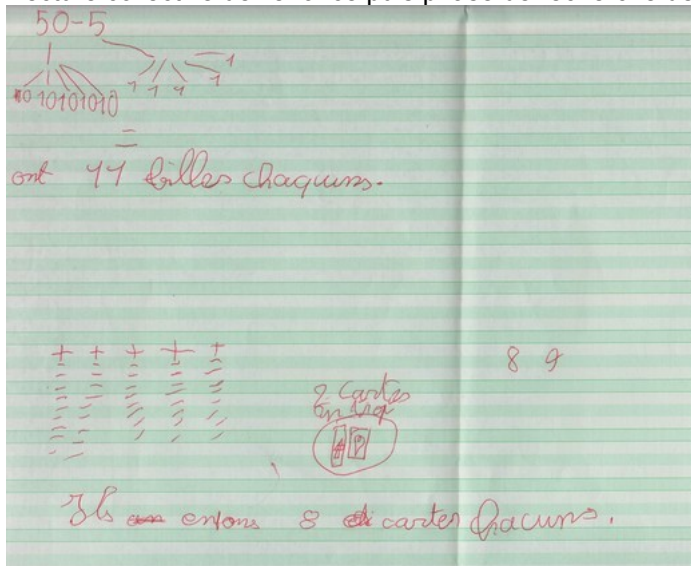 50-5
1 1 1 1 1
10 10 10 10 10
=
ont 11 billes chaquns.
+ + + + +
8 9
2 cartes
en trop
Ils enfons 8 cartes chacuns.